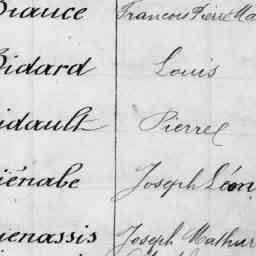 Biance François Pierre Ma
Bidard Louis
idault Pierre
iénabe Joseph Léon
ienassis Joseph Mathur